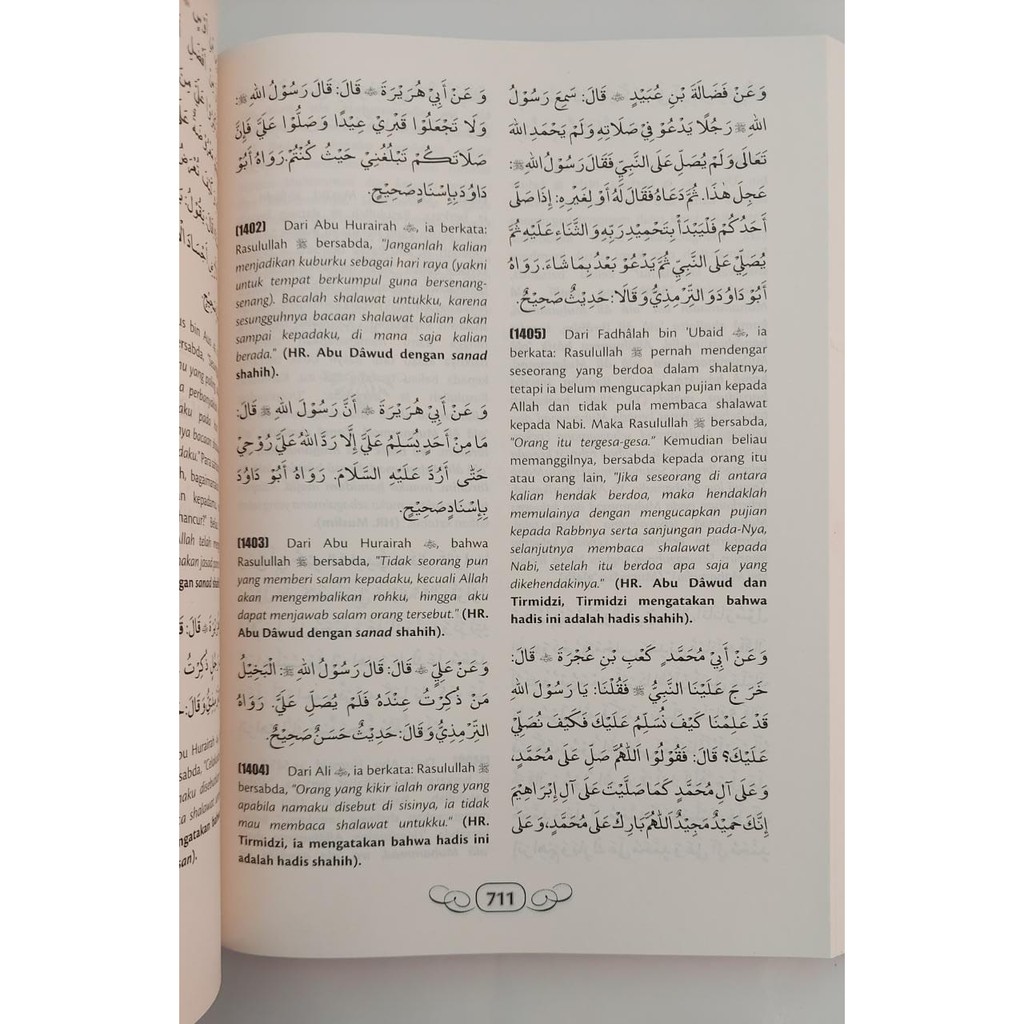 وَعَنْ أَبِيْ هُرَيْرَةَ ﷺ قَالَ: قَالَ رَسُوْلُ اللهِ ﷺ:
وَلَا تَجْعَلُوْا قَبْرِيْ عِيْدًا وَصَلُّوْا عَلَيَّ فَإِنَّ
صَلَاتَكُمْ تَبْلُغُنِيْ حَيْثُ كُنْتُمْ. رَوَاهُ أَبُوْ
دَاوُدَ بِإِسْنَادٍ صَحِيْحٍ.
(1402) Dari Abu Hurairah, ia berkata:
Rasulullah ﷺ bersabda, "Janganlah kalian
menjadikan kuburku sebagai hari raya (yakni
untuk tempat berkumpul guna bersenang-
senang). Bacalah shalawat untukku, karena
sesungguhnya bacaan shalawat kalian akan
sampai kepadaku, di mana saja kalian
berada." (HR. Abu Dâwud dengan sanad
shahih).
وَعَنْ أَبِيْ هُرَيْرَةَ أَنَّ رَسُوْلَ اللهِ ﷺ قَالَ:
مَا مِنْ أَحَدٍ يُسَلِّمُ عَلَيَّ إِلَّا رَدَّ اللهُ عَلَيَّ رُوْحِيْ
حَتَّى أَرُدَّ عَلَيْهِ السَّلَامَ. رَوَاهُ أَبُوْ دَاوُدَ
بِإِسْنَادٍ صَحِيْحٍ.
(1403) Dari Abu Hurairah, bahwa
Rasulullah ﷺ bersabda, "Tidak seorang pun
yang memberi salam kepadaku, kecuali Allah
akan mengembalikan rohku, hingga aku
dapat menjawab salam orang tersebut." (HR.
Abu Dâwud dengan sanad shahih).
وَعَنْ عَلِيٍّ قَالَ: قَالَ رَسُوْلُ اللهِ ﷺ: الْبَخِيْلُ
مَنْ ذُكِرْتُ عِنْدَهُ فَلَمْ يُصَلِّ عَلَيَّ. رَوَاهُ
التِّرْمِذِيُّ وَقَالَ: حَدِيْثٌ حَسَنٌ صَحِيْحٌ.
(1404) Dari Ali, ia berkata: Rasulullah ﷺ
bersabda, "Orang yang kikir ialah orang yang
apabila namaku disebut di sisinya, ia tidak
mau membaca shalawat untukku." (HR.
Tirmidzi, ia mengatakan bahwa hadis ini
adalah hadis shahih).
وَعَنْ فَضَالَةَ بْنِ عُبَيْدٍ قَالَ: سَمِعَ رَسُوْلُ
اللهِ ﷺ رَجُلًا يَدْعُوْ فِيْ صَلَاتِهِ وَلَمْ يَحْمَدِ اللهَ
تَعَالَى وَلَمْ يُصَلِّ عَلَى النَّبِيِّ فَقَالَ رَسُوْلُ اللهِ ﷺ:
عَجِلَ هٰذَا. ثُمَّ دَعَاهُ فَقَالَ لَهُ أَوْ لِغَيْرِهِ: إِذَا صَلَّى
أَحَدُكُمْ فَلْيَبْدَأْ بِتَحْمِيْدِ رَبِّهِ وَالثَّنَاءِ عَلَيْهِ ثُمَّ
يُصَلِّيْ عَلَى النَّبِيِّ ثُمَّ يَدْعُوْ بَعْدُ بِمَا شَاءَ. رَوَاهُ
أَبُوْ دَاوُدَ وَالتِّرْمِذِيُّ وَقَالَا: حَدِيْثٌ صَحِيْحٌ.
(1405) Dari Fadhâlah bin 'Ubaid, ia
berkata: Rasulullah ﷺ pernah mendengar
seseorang yang berdoa dalam shalatnya,
tetapi ia belum mengucapkan pujian kepada
Allah dan tidak pula membaca shalawat
kepada Nabi. Maka Rasulullah ﷺ bersabda,
"Orang itu tergesa-gesa." Kemudian beliau
memanggilnya, bersabda kepada orang itu
atau orang lain, "Jika seseorang di antara
kalian hendak berdoa, maka hendaklah
memulainya dengan mengucapkan pujian
kepada Rabbnya serta sanjungan pada-Nya,
selanjutnya membaca shalawat kepada
Nabi, setelah itu berdoa apa saja yang
dikehendakinya." (HR. Abu Dâwud dan
Tirmidzi, Tirmidzi mengatakan bahwa
hadis ini adalah hadis shahih).
وَعَنْ أَبِيْ مُحَمَّدٍ كَعْبِ بْنِ عُجْرَةَ قَالَ:
خَرَجَ عَلَيْنَا النَّبِيُّ ﷺ فَقُلْنَا: يَا رَسُوْلَ اللهِ
قَدْ عَلِمْنَا كَيْفَ نُسَلِّمُ عَلَيْكَ فَكَيْفَ نُصَلِّيْ
عَلَيْكَ؟ قَالَ: فَقُوْلُوْا اَللّٰهُمَّ صَلِّ عَلَى مُحَمَّدٍ،
وَعَلَى آلِ مُحَمَّدٍ كَمَا صَلَّيْتَ عَلَى آلِ إِبْرَاهِيْمَ
إِنَّكَ حَمِيْدٌ مَجِيْدٌ اَللّٰهُمَّ بَارِكْ عَلَى مُحَمَّدٍ، وَعَلَى
711